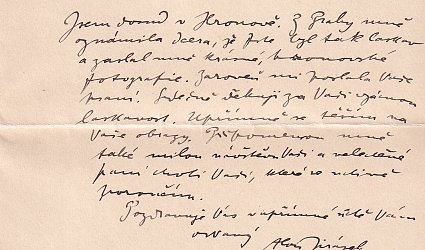 Jsem dosud v Hronově. Z Prahy mně
oznámila dcera, že jste byl tak laskav
a zaslal mně krásné, hronovské
fotografie. Zároveň mi poslala Vaše
psaní. Srdečně děkuji za Vaši vzácnou
laskavost. Upřímně se těším na
Vaše obrazy. Připomenou mně
také milou návštěvu Vaši a
paní choti Vaší, které se uctivě
poroučím.
Pozdravuje Vás upřímně cítě Vám
oddaný
Alois Jirásek